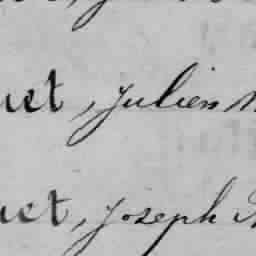 uet, Julien
uet, Joseph